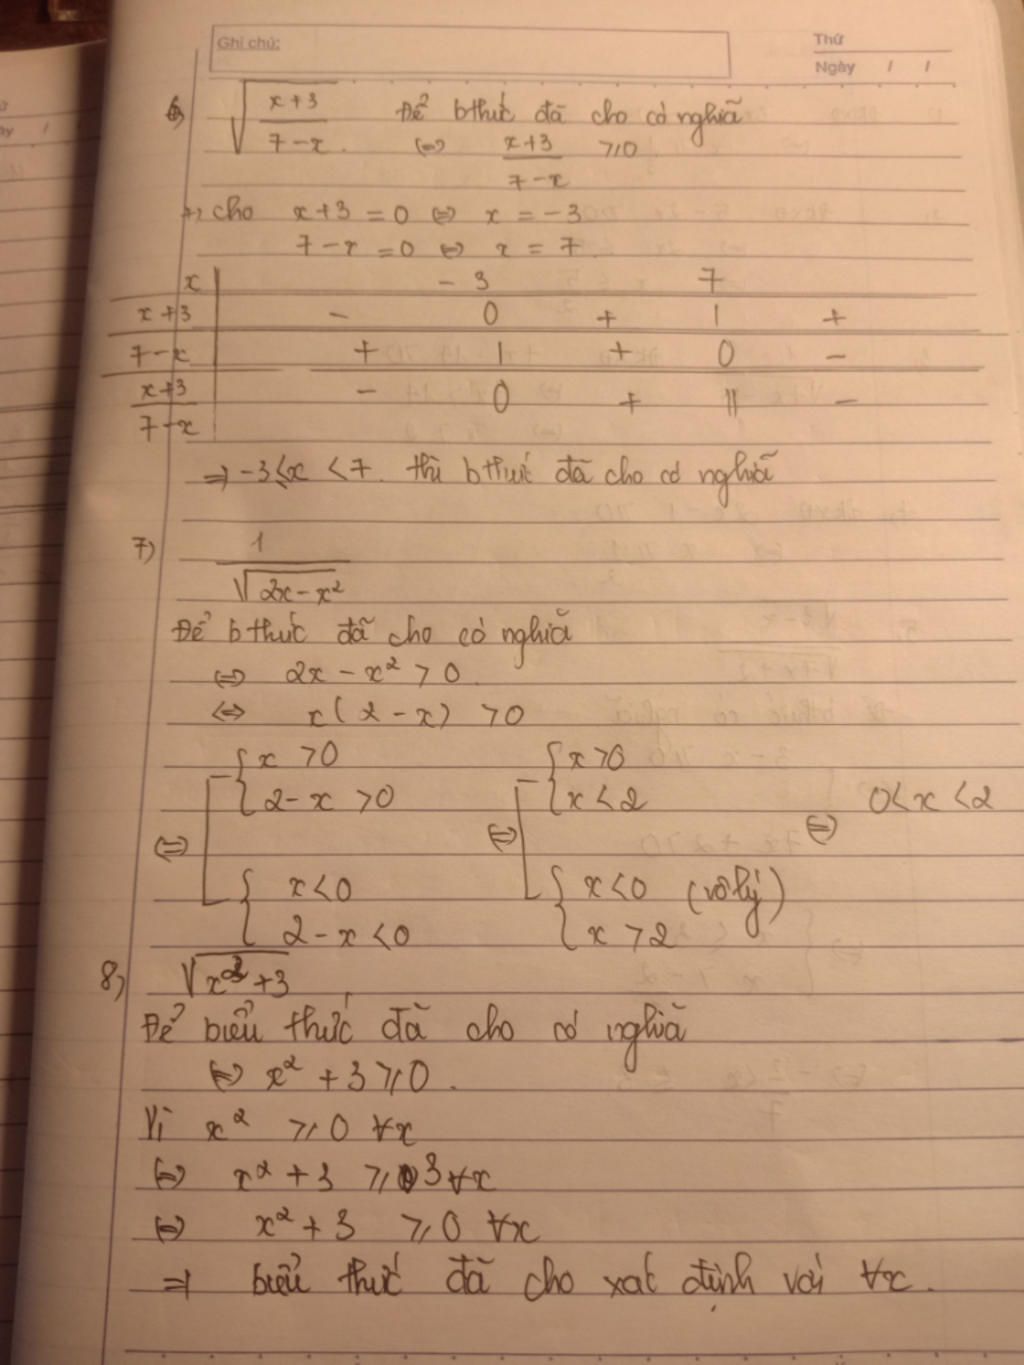 Ghi chú:
Thứ
Ngày / /
6) √((x+3)/(7-x)) Để bthức đã cho có nghiã
⇔ (x+3)/(7-x) ⩾0
+, cho x+3 = 0 ⇔ x = -3
7-x = 0 ⇔ x = 7
x | -3 7
x+3 | - 0 + | +
7-x | + | + 0 -
(x+3)/(7-x) | - 0 + || -
⇒ -3⩽x <7. thì bthức đã cho có nghiã
7) 1/√(2x-x²)
Để bthức đã cho có nghiã
⇔ 2x - x² > 0.
⇔ x(2-x) >0
⇔ [ { x >0 ; 2-x >0 ⇔ [ { x >0 ; x <2 ⇔ 0<x <2
{ x <0 ; 2-x <0 { x <0 ; x >2 (vô lý)
8) √(x²+3)
Để biểu thức đã cho có nghiã
⇔ x² + 3 ⩾0.
Vì x² ⩾0 ∀x
⇔ x² + 3 ⩾ 3 ∀x
⇔ x² + 3 ⩾0 ∀x
⇒ biểu thức đã cho xác định với ∀x.